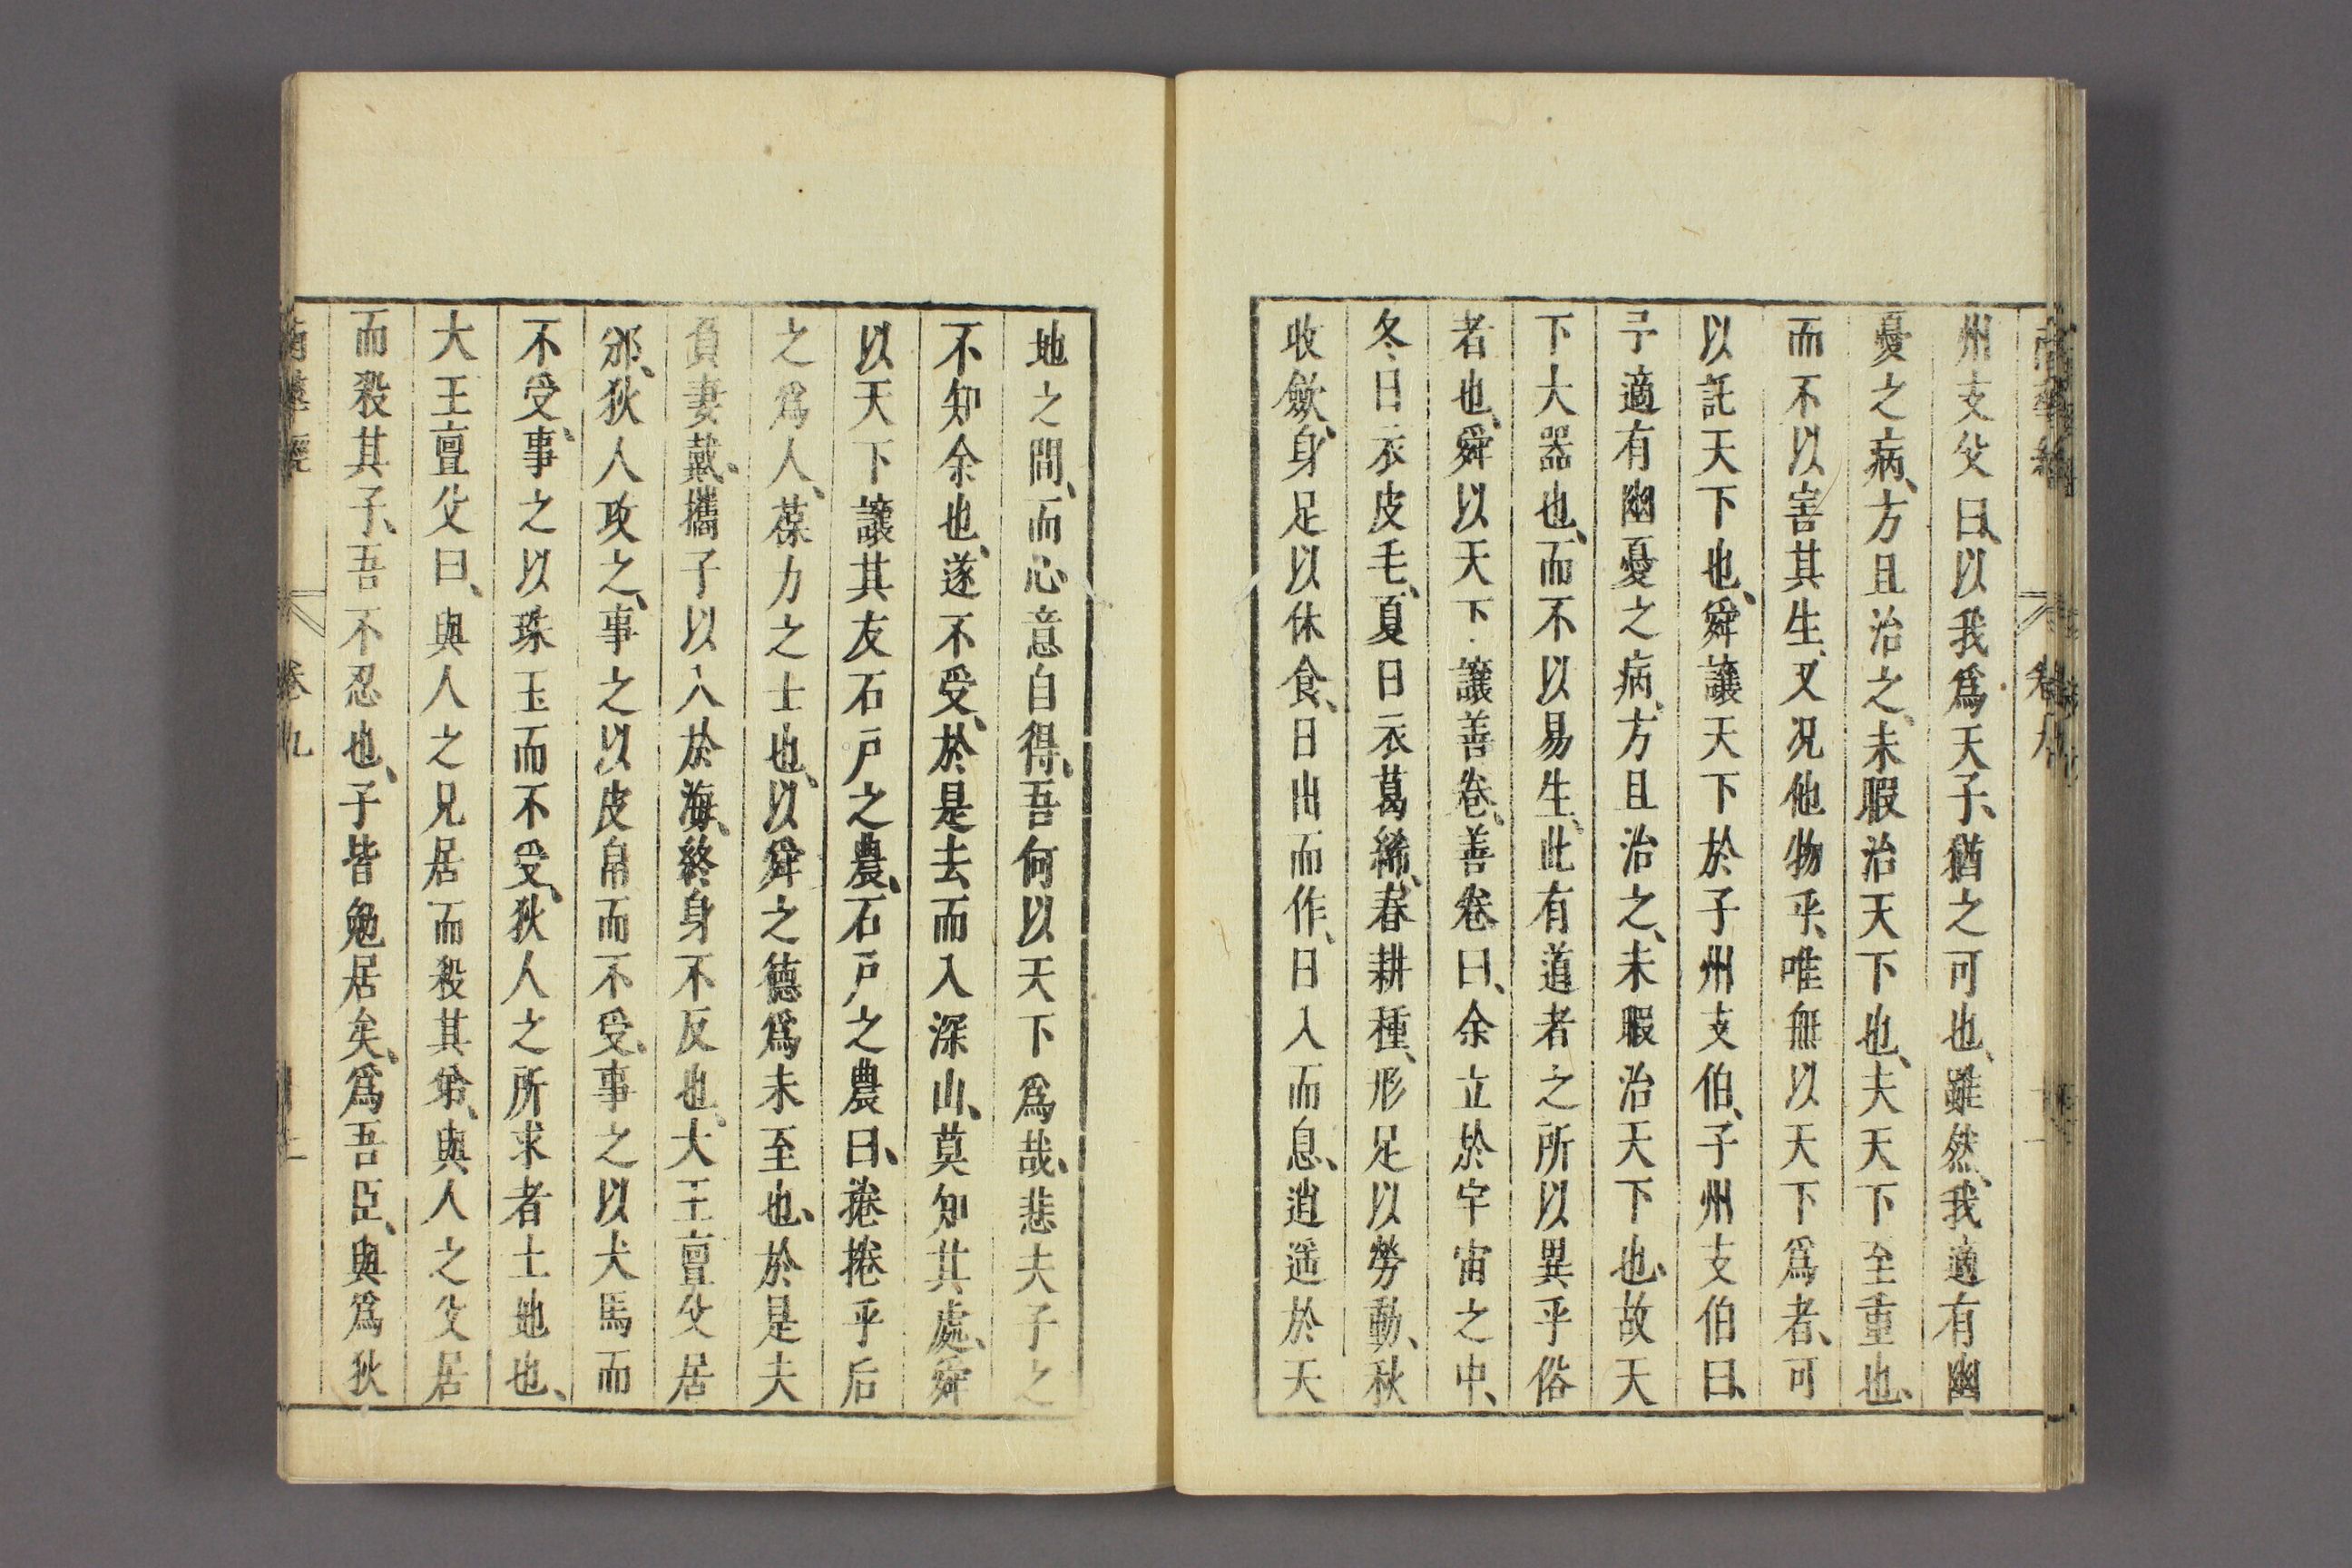 州支父曰、以我爲天子、猶之可也、雖然、我適有幽
憂之病、方且治之、未暇治天下也、夫天下至重也、
而不以害其生、又况他物乎、唯無以天下爲者、可
以託天下也、舜讓天下於子州支伯、子州支伯曰、
予適有幽憂之病、方且治之、未暇治天下也、故天
下大器也、而不以易生、此有道者之所以異乎俗
者也、舜以天下讓善卷、善卷曰、余立於宇宙之中、
冬日衣皮毛、夏日衣葛絺、春耕種、形足以勞動、秋
收斂、身足以休食、日出而作、日入而息、逍遥於天
地之間、而心意自得、吾何以天下爲哉、悲夫子之
不知余也、遂不受、於是去而入深山、莫知其處、舜
以天下讓其友石戶之農、石戶之農曰、捲捲乎后
之爲人、葆力之士也、以舜之德爲未至也、於是夫
負妻戴、攜子以入於海、終身不反也、大王亶父居
邠、狄人攻之、事之以皮帛而不受、事之以犬馬而
不受、事之以珠玉而不受、狄人之所求者土地也、
大王亶父曰、與人之兄居而殺其弟、與人之父居
而殺其子、吾不忍也、子皆勉居矣、爲吾臣、與爲狄
南華經 卷九